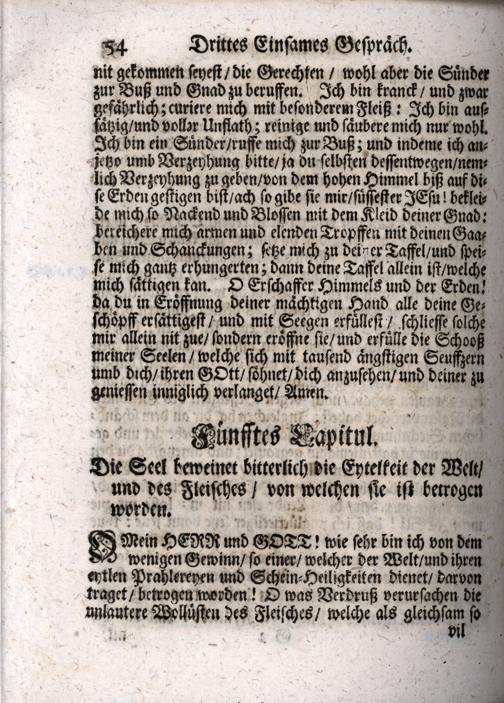 54 Drittes Einsames Gespräch.
nit gekommen seyest/die Gerechten/ wohl aber die Sünder
zur Buß und Gnad zu beruffen. Ich bin kranck/ und zwar
gefährlich; curiere mich mit besonderem Fleiß: Ich bin aus-
sätzig/und voller Unflath; reinige und säubere mich nur wohl.
Ich bin ein Sünder/ruffe mich zur Buß; und indeme ich an-
jetzo umb Verzeyhung bitte/ja du selbsten dessentwegen/nem-
lich Verzeyhung zu geben/von dem hohen Himmel biß auf di-
se Erden gestigen bist/ach so gibe sie mir/süssester JEsu! beklei-
de mich so Nackend und Blossen mit dem Kleid deiner Gnad:
bereichere mich armen und elenden Tropffen mit deinen Gaa-
ben und Schanckungen; setze mich zu deiner Taffel/und spei-
se mich gantz erhungerten; dann deine Taffel allein ist/welche
mich sättigen kan. O Erschaffer Himmels und der Erden!
da du in Eröffnung deiner mächtigen Hand alle deine Ge-
schöpff ersättigest/ und mit Seegen erfüllest/ schliesse solche
mir allein nit zue/sondern eröffne sie/und erfülle die Schooß
meiner Seelen/welche sich mit tausend ängstigen Seuffzern
umb dich/ihren GOtt/söhnet/dich anzusehen/und deiner zu
geniessen inniglich verlanget/Amen.
Fünfftes Capitul.
Die Seel beweinet bitterlich die Eytelkeit der Welt/
und des Fleisches/ von welchen sie ist betrogen
worden.
O Mein HERR und GOTT! wie sehr bin ich von dem
wenigen Gewinn/so einer/welcher der Welt/und ihren
eytlen Prahlereyen und Schein-Heiligkeiten dienet/darvon
traget/betrogen worden! O was Verdruß verursachen die
unlautere Wollüsten des Fleisches/ welche als gleichsam so
vil